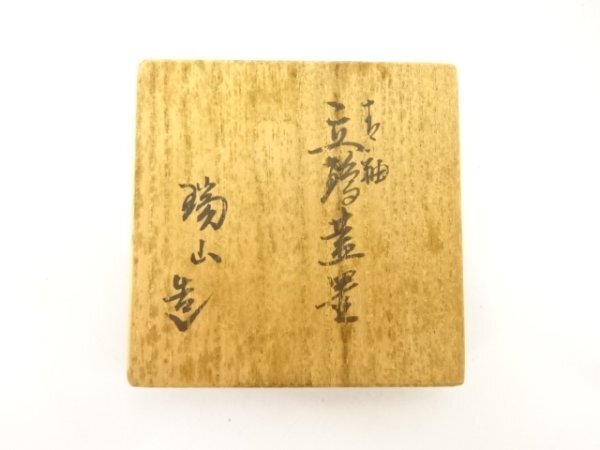 青釉
立鶴蓋置
瑞山造